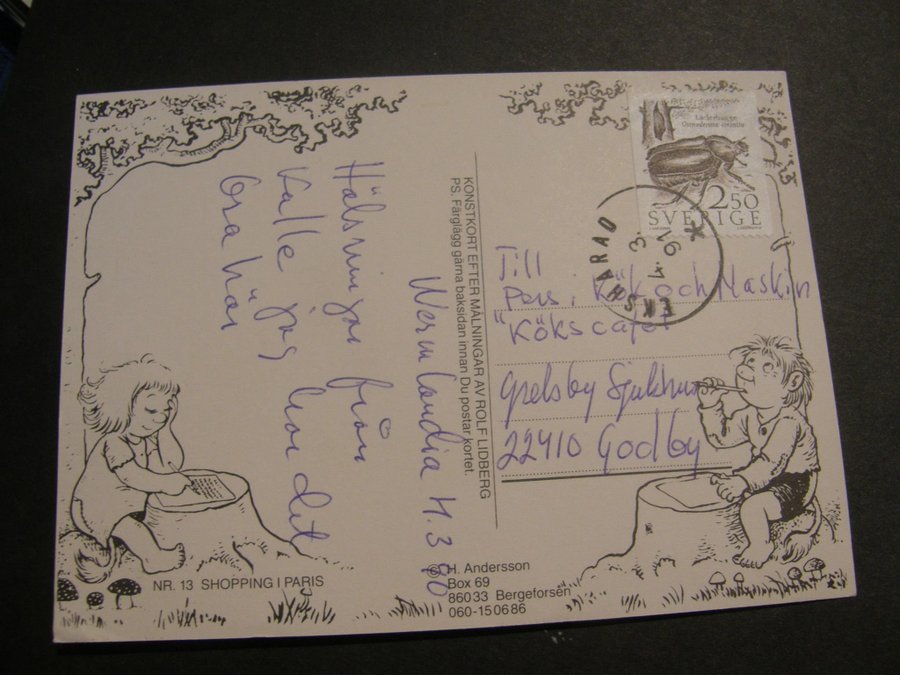 Wermlandia 4.3 90
Hälsningar från
Kalle jag har det
bra här
KONSTKORT EFTER MÅLNINGAR AV ROLF LIDBERG
PS. Färglägg gärna baksidan innan Du postar kortet.
Läderbagge
Osmoderma eremita
2.50
SVERIGE
EKSHÄRAD
91
Till
Pers. Kök och Maskin
"Kökscafét
Grelsby Sjukhus
22410 Godby
NR. 13 SHOPPING I PARIS
© H. Andersson
Box 69
860 33 Bergeforsen
060-150686